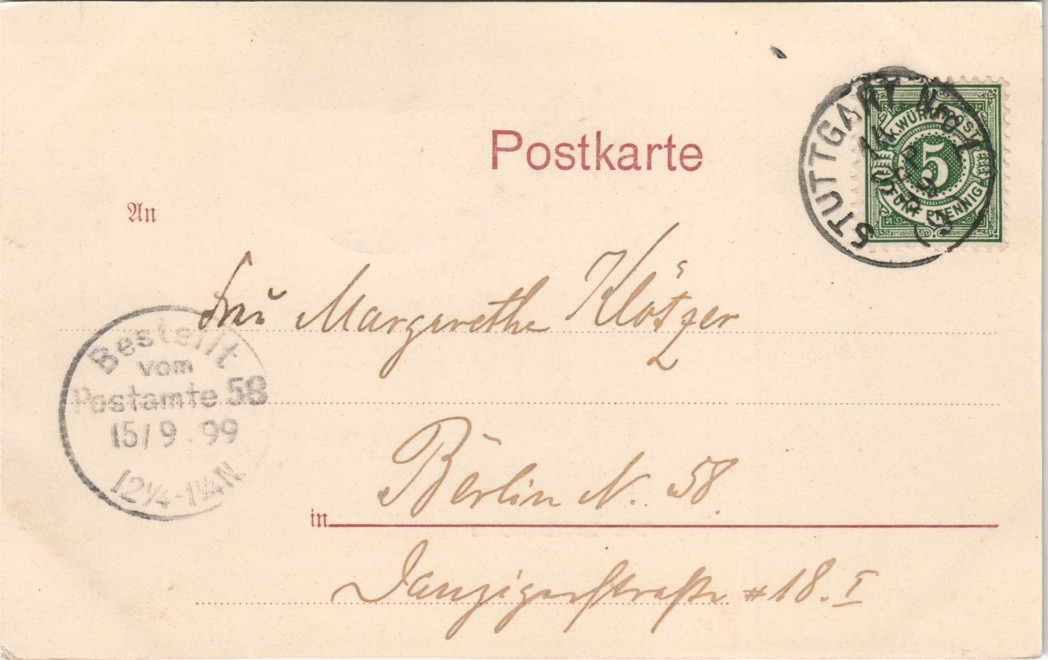 Postkarte
STUTTGART Nro. 1
14
K. WÜRTT. POST
5
FÜNF PFENNIG
An
Frau Margarethe Klötzer
Bestellt
vom
Postamte 58
15/9.99
12¼-1¼N.
Berlin N. 58.
in
Danzigerstraße #18.I